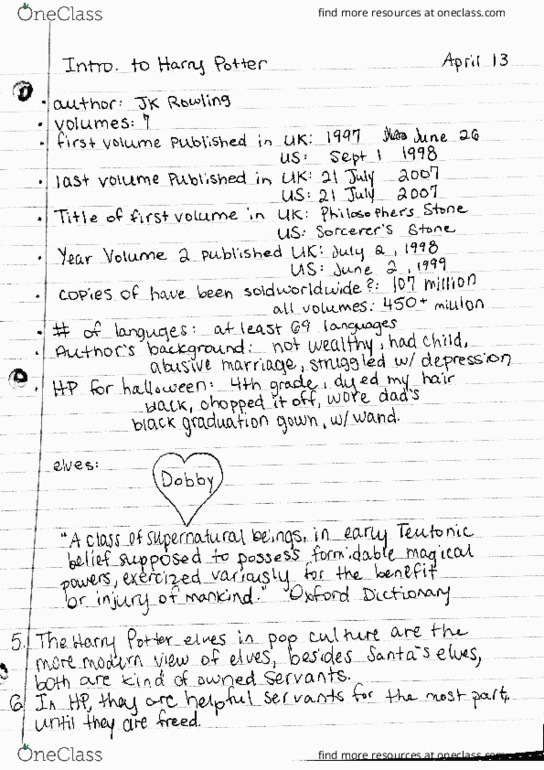 OneClass find more resources at oneclass.com
Intro. to Harry Potter April 13
• author: JK Rowling
• volumes: 7
• first volume published in UK: 1997 June 26
US: Sept 1 1998
• last volume published in UK: 21 July 2007
US: 21 July 2007
• Title of first volume in UK: Philosopher's Stone
US: Sorcerer's Stone
• Year Volume 2 published UK: July 2, 1998
US: June 2, 1999
• copies of have been soldworldwide?: 107 million
all volumes: 450+ million
• # of languges: at least 69 languages
• Author's background: not wealthy, had child,
abusive marriage, struggled w/ depression
• HP for halloween: 4th grade, dyed my hair
back, chopped it off, wore dad's
black graduation gown, w/ wand.
elves:
Dobby
"A class of supernatural beings, in early Teutonic
belief supposed to possess formidable magical
powers, exercized variously for the benefit
or injury of mankind." "Oxford Dictionary
5. The Harry Potter elves in pop culture are the
more modern view of elves, besides Santa's elves,
both are kind of owned servants.
6. In HP, they are helpful servants for the most part,
until they are freed.
OneClass find more resources at oneclass.com